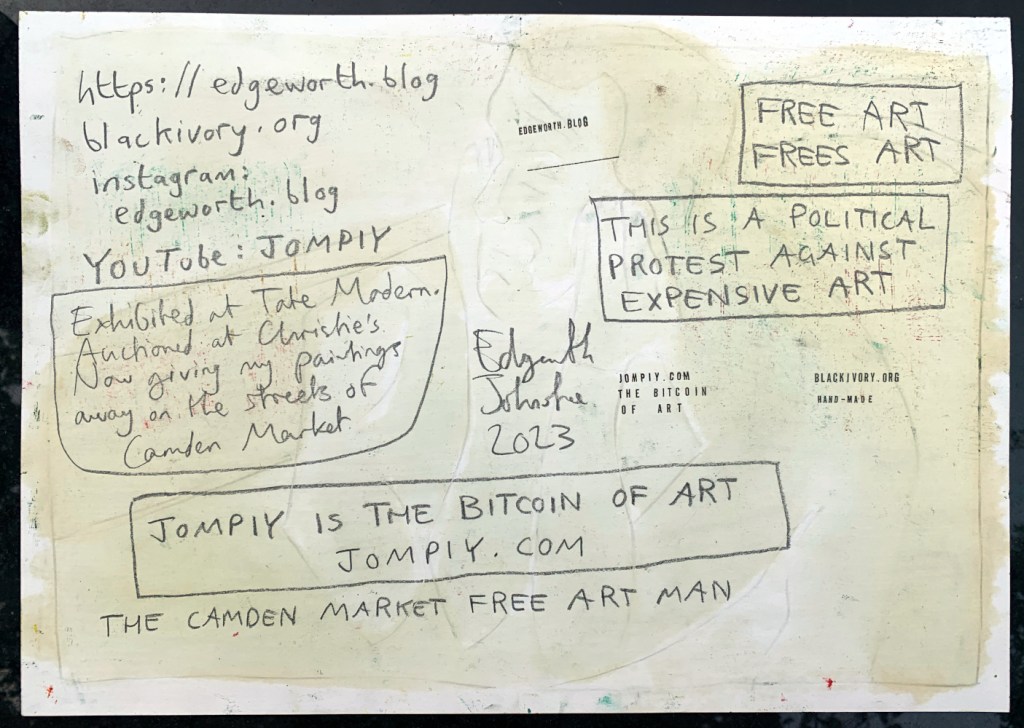 https://edgeworth.blog
blackivory.org
instagram:
edgeworth.blog
YouTube: JOMPIY
Exhibited at Tate Modern.
Auctioned at Christie's
Now giving my paintings
away on the streets of
Camden Market
EDGEWORTH.BLOG
FREE ART
FREES ART
THIS IS A POLITICAL
PROTEST AGAINST
EXPENSIVE ART
Edgeworth
Johnstone
2023
JOMPIY.COM
THE BITCOIN
OF ART
BLACKIVORY.ORG
HAND-MADE
JOMPIY IS THE BITCOIN OF ART
JOMPIY.COM
THE CAMDEN MARKET FREE ART MAN